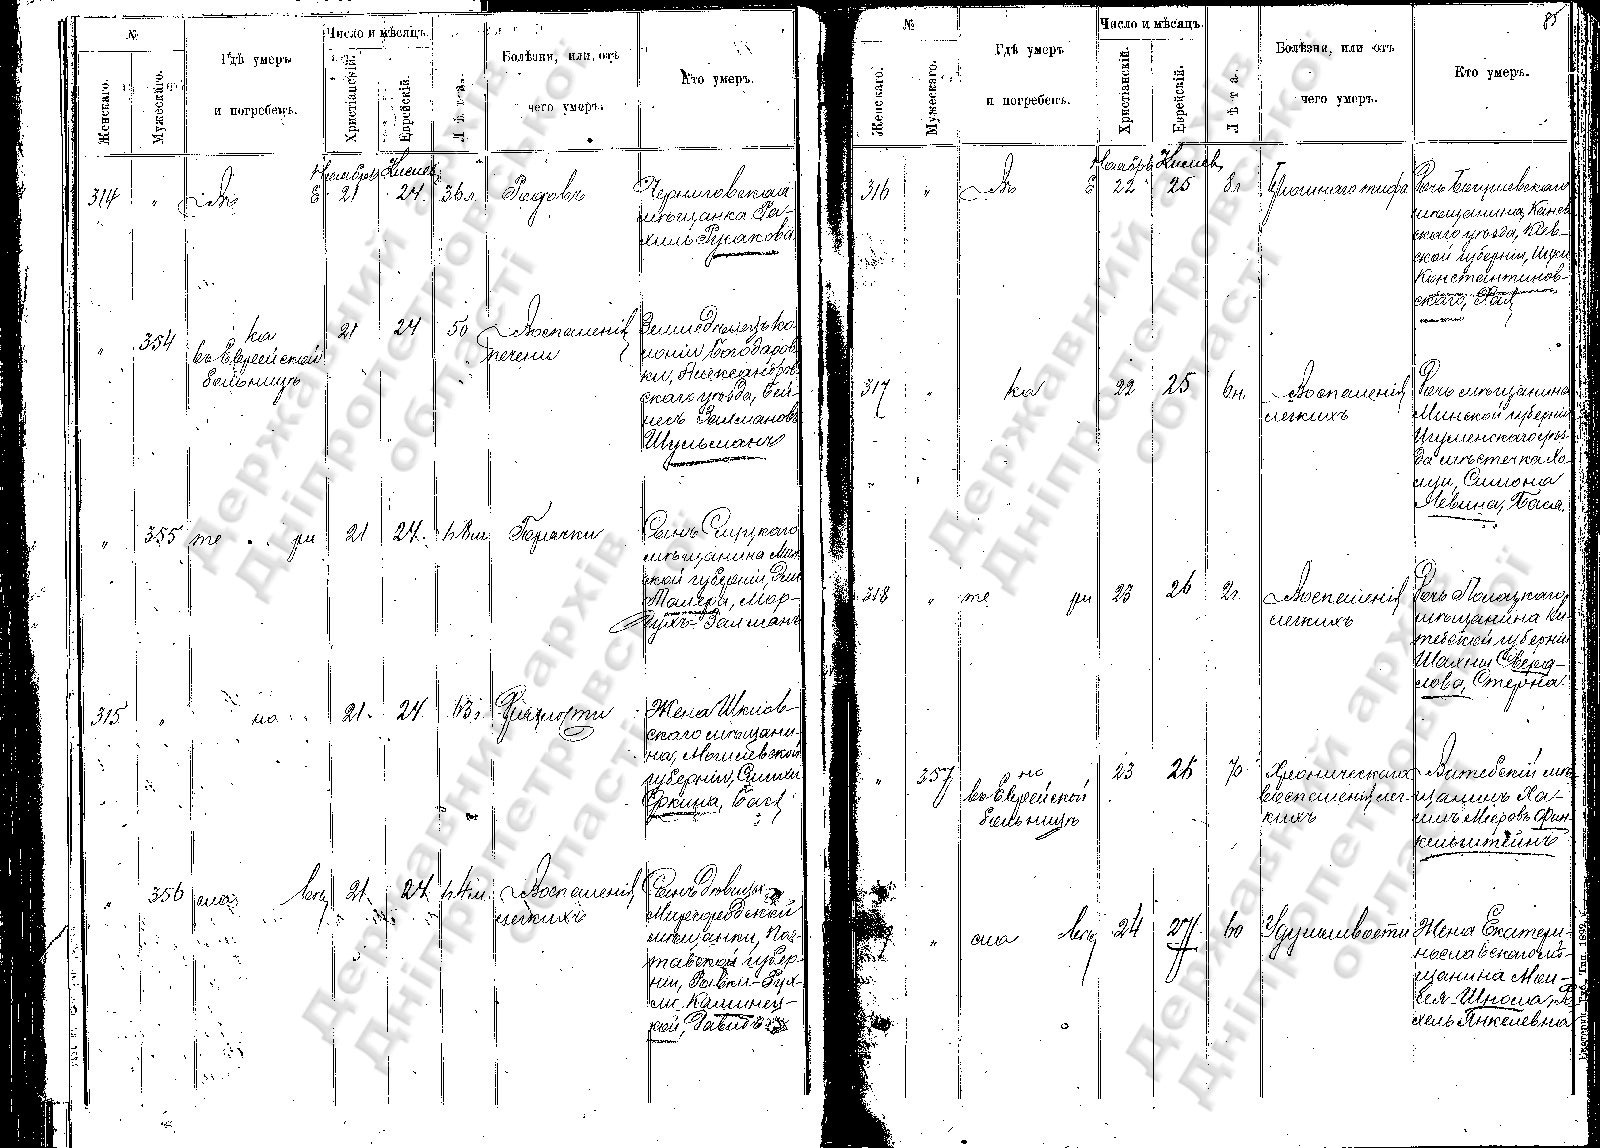 №
Женскаго.
Мужескаго.
Гдѣ умеръ
и погребенъ.
Число и мѣсяцъ.
Христіанскій.
Еврейскій.
Лѣта.
Болѣзни, или отъ
чего умеръ.
Кто умеръ.
Ноябрь Кислев
314 " Въ Е 21 24 36 л. Родовъ
Черниговская
мѣщанка Ра-
хиль Рукакова
" 354 ка
въ Еврейской
больницѣ
21 24 50 Воспаленія
печени
Земледѣлецъ ко-
лоніи Богодаров-
ки, Александров-
скаго уѣзда, Бей-
несъ Залмановъ
Шульманъ
" 355 те ри 21 24 Горячки
Сынъ Слуцкаго
мѣщанина Мин-
ской губерніи,
Талера, Мор-
духъ-Залманъ
315 " но 21 24 63
Жена Шклов-
скаго мѣщани-
на, Могилевской
губерніи,
Эркина, Бася
" 356 сла вль 21 24 Воспаленія
легкихъ
Сынъ дѣвицы
Миргородской
мѣщанки, Пол-
тавской губер-
ніи, Ривки-Рух-
ли Калинец-
кой, Давидъ
85
№
Женскаго.
Мужескаго.
Гдѣ умеръ
и погребенъ.
Число и мѣсяцъ.
Христіанскій.
Еврейскій.
Лѣта.
Болѣзни, или отъ
чего умеръ.
Кто умеръ.
Ноябрь Кислев
316 " Въ Е 22 25 8 л. Брюшного тифа
Дочь Богуславскаго
мѣщанина, Канев-
скаго уѣзда, Кіев-
ской губерніи, Ицки
Константинов-
скаго, Рая
317 " ка 22 25 Воспаленія
легкихъ
Дочь мѣщанина
Минской губерніи
Игуменскаго уѣз-
да мѣстечка Хо-
луи, Симона
Левина, Бася.
318 " те ри 23 26 2 г. Воспаленія
легкихъ
Дочь Полоцкаго
мѣщанина Ви-
тебской губерніи
Шахны Сверд-
лова, Стерна.
" 357 но
въ Еврейской
больницѣ
23 26 70 Хроническаго
воспаленія лег-
кихъ
Витебскій мѣ-
щанинъ Ха-
имъ Мееровъ Фин-
кельштейнъ
" сла вль 24 27 60 Удушливости
Жена Екатери-
нославскаго мѣ-
щанина Мои-
сея Шнола, Ро-
хель Янкелевна
Державний архів
Дніпропетровської
області